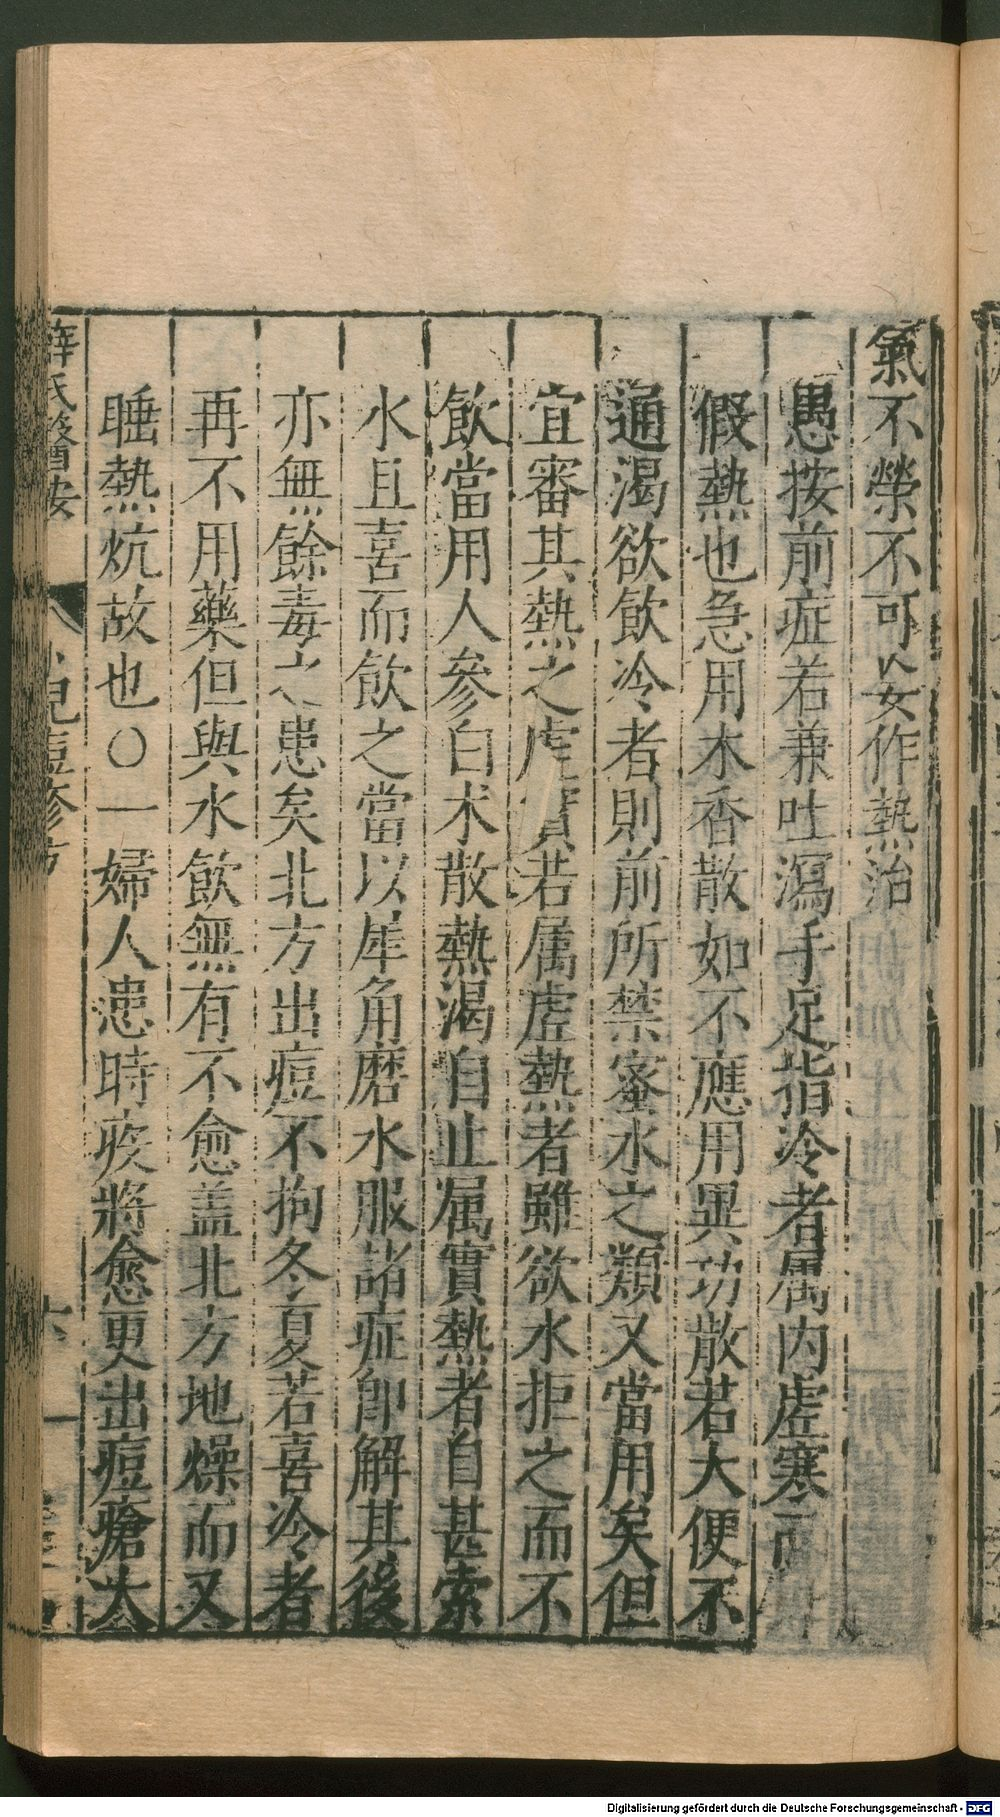 氣不榮不可妄作熱治
愚按前症若兼吐瀉手足指冷者属内虛寒而
假熱也急用木香散如不應用異功散若大便不
通渴欲飲冷者則前所禁蜜水之類又當用矣但
宜審其熱之虛實若属虛熱者雖欲水拒之而不
飲當用人參白术散熱渴自止属實熱者自甚索
水且喜而飲之當以犀角磨水服諸症卽解其後
亦無餘毒之患矣北方出痘不拘冬夏若喜冷者
再不用藥但與水飲無有不愈盖北方地燥而又
睡熱炕故也〇一婦人患時疫將愈更出痘瘡大
薛氏醫按
小兒痘疹方
六
Digitalisierung gefördert durch die Deutsche Forschungsgemeinschaft - DFG